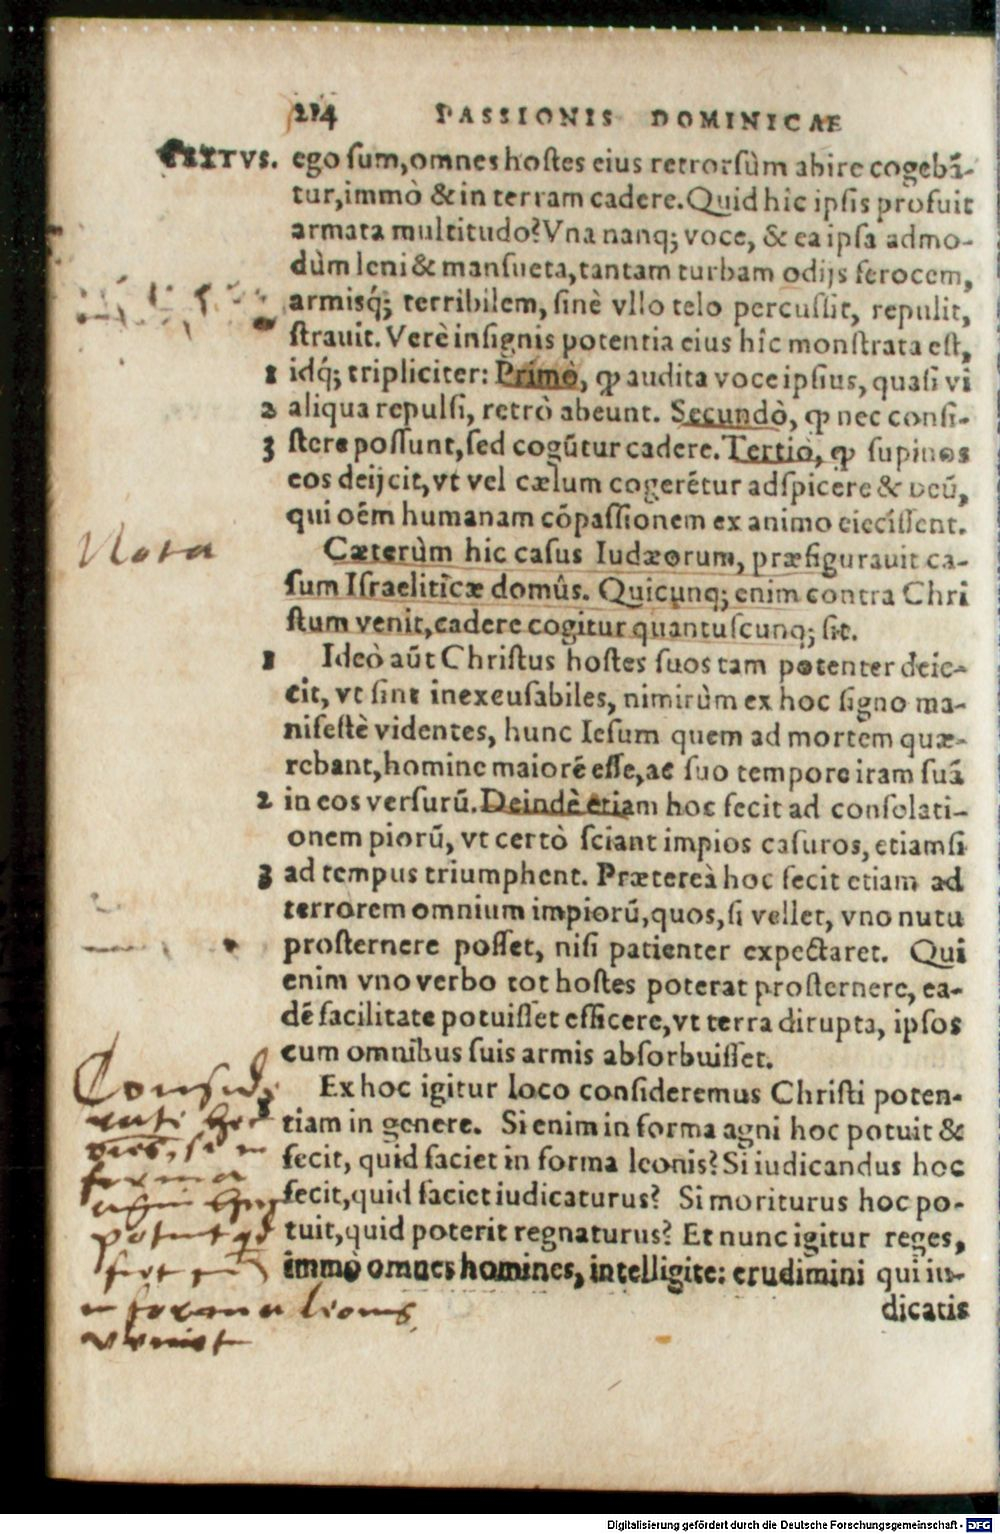 214 PASSIONIS DOMINICAE
TEXTVS. ego sum, omnes hostes eius retrorsùm abire cogebā-
tur, immò & in terram cadere. Quid hic ipsis profuit
armata multitudo? Vna nanq; voce, & ea ipsa admo-
dùm leni & mansueta, tantam turbam odijs ferocem,
armisq́; terribilem, sinè vllo telo percussit, repulit,
strauit. Verè insignis potentia eius hîc monstrata est,
1 idq́; tripliciter: Primò, ꝙ audita voce ipsius, quasi vi
2 aliqua repulsi, retrò abeunt. Secundò, ꝙ nec consi-
3 stere possunt, sed cogūtur cadere. Tertiò, ꝙ supinos
eos deijcit, vt vel cælum cogerētur adspicere & deū,
qui oēm humanam cōpassionem ex animo eiecissent.
Nota
Cæterùm hic casus Iudæorum, præfigurauit ca-
sum Israeliticæ domûs. Quicunq; enim contra Chri
stum venit, cadere cogitur quantuscunq; sit.
1 Ideò aūt Christus hostes suos tam potenter deie-
cit, vt sint inexcusabiles, nimirùm ex hoc signo ma-
nifestè videntes, hunc Iesum quem ad mortem quæ-
rebant, homine maiorē esse, ac suo tempore iram suā
2 in eos versurū. Deindè etiam hoc fecit ad consolati-
onem piorū, vt certò sciant impios casuros, etiamsi
3 ad tempus triumphent. Prætereà hoc fecit etiam ad
terrorem omnium impiorū, quos, si vellet, vno nutu
prosternere posset, nisi patienter expectaret. Qui
enim vno verbo tot hostes poterat prosternere, ea-
dē facilitate potuisset efficere, vt terra dirupta, ipsos
cum omnibus suis armis absorbuisset.
Ex hoc igitur loco consideremus Christi poten-
tiam in genere. Si enim in forma agni hoc potuit &
fecit, quid faciet in forma leonis? Si iudicandus hoc
fecit, quid faciet iudicaturus? Si moriturus hoc po-
tuit, quid poterit regnaturus? Et nunc igitur reges,
immò omnes homines, intelligite: erudimini qui iu-
dicatis
si in
forma
agni hoc
potuit qd
in forma leonis
veniet
Digitalisierung gefördert durch die Deutsche Forschungsgemeinschaft - DFG